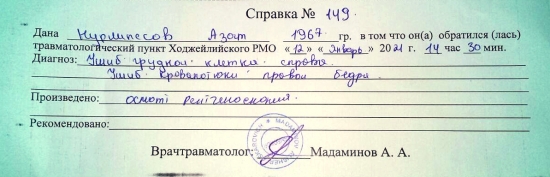 Справка № 149.
Дана Нурлипесов Азат 1967 гр. в том что он(а) обратился (лась)
травматологический пункт Ходжейлийского РМО «12» «Январь» 2021 г. 14 час 30 мин.
Диагноз: Ушиб грудной клетки справа.
Ушиб кровоподтёки правой бедра.
Произведено: осмотр рентгеноскопия.
Рекомендовано:
Врачтравматолог: Мадаминов А. А.